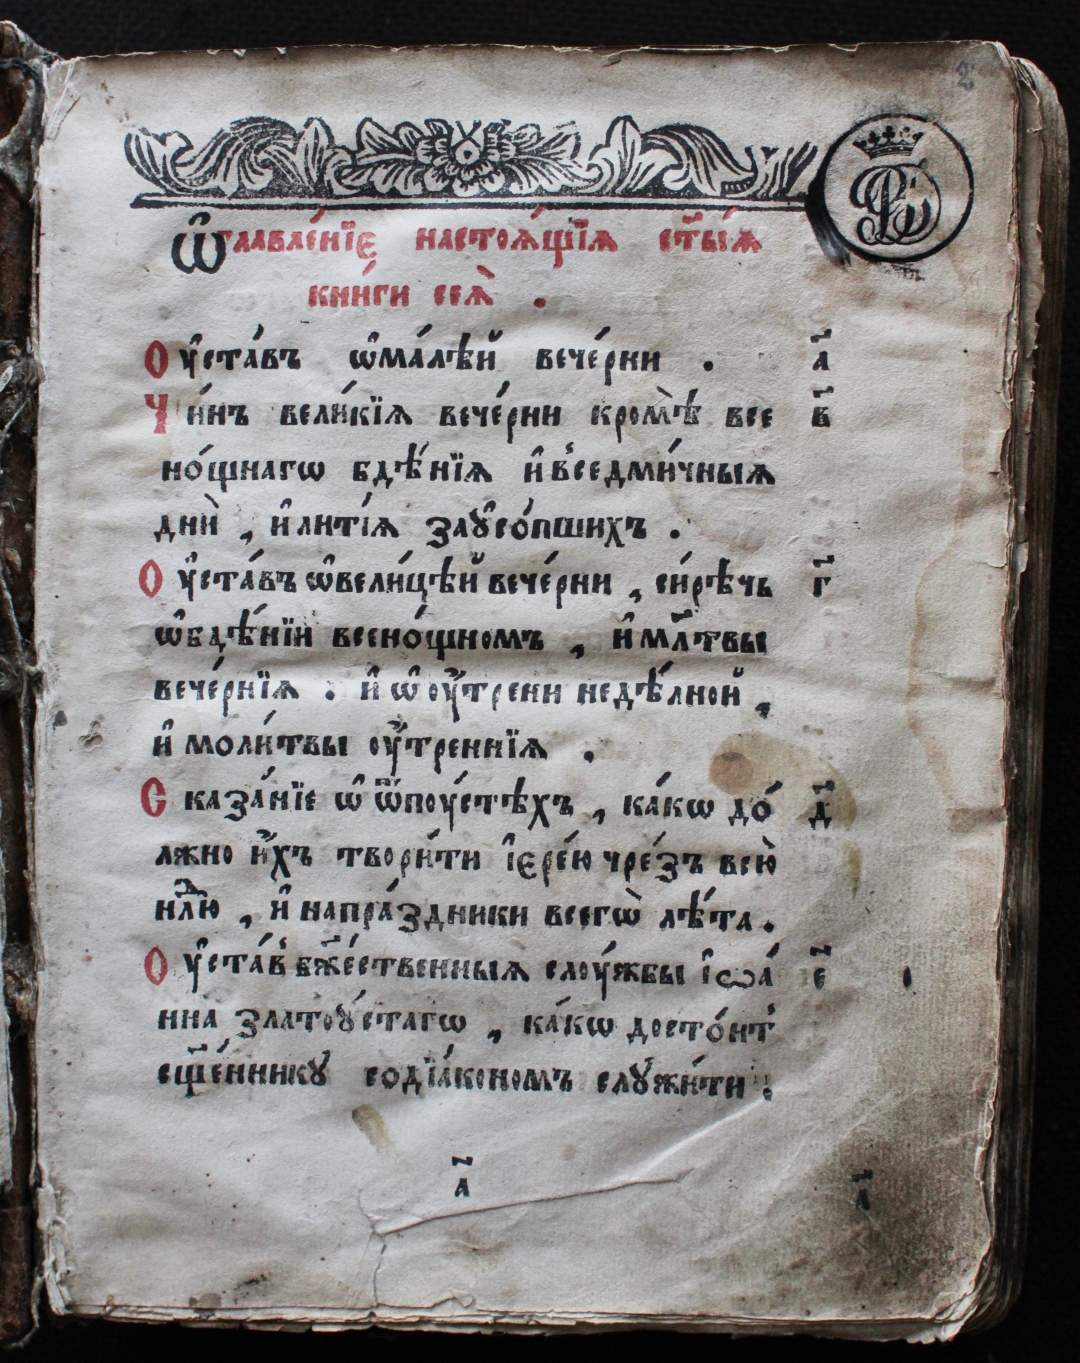 2
Ѡ҆главле́нїе настоѧ́щїѧ ст҃ы́ѧ
кни́ги сеѧ̀ .
Оу҆ста́въ ѡ҆ма́лѣй вече́рни . а҃
Чи́нъ вели́кїѧ вече́рни кромѣ̀ все в҃
но́щнагѡ бдѣ́нїѧ и҆ в̾седми́чныѧ
дни̑ , и҆ литі́ѧ заᲂу҆со́пшихъ .
Оу҆ста́въ ѡ҆вели́цѣй вече́рни , си́рѣчь г҃
ѡ҆бдѣ́нїи всено́щномъ , и҆ мл҃твы
вече́рнїѧ . и҆ ѡ҆ оу҆́трени недѣ́лной ,
и҆ моли́твы оу҆́треннїѧ .
Сказа́нїе ѡ҆ ѿпоу́стѣхъ , ка́кѡ до́ д҃
лжно и҆́хъ твори́ти і҆ере́ю чре́зъ всю̀
нлⷣю , и҆ напра́здники всегѡ̀ лѣ́та .
Оу҆ста́в̾ бж҃е́ственныѧ слоу́жбы і҆ѡа́ е҃
нна златоꙋ́стагѡ , ка́кѡ досто́ит̾
сщ҃е́нникꙋ содїа́кономъ слꙋжи́ти .
а҃